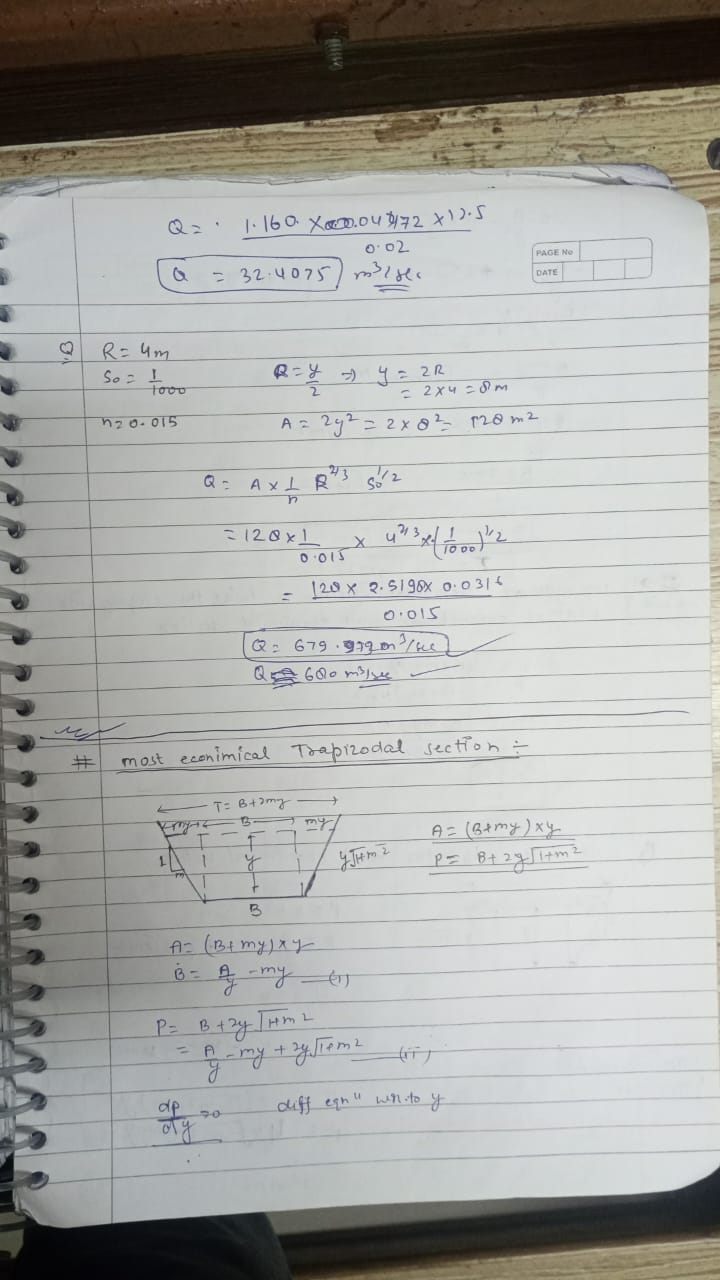 Q = 1.160 × 0.04472 × 12.5
0.02
Q = 32.4075 m³/sec
PAGE No
DATE
Q R = 4m
S₀ = 1/1000
R = y/2 ⇒ y = 2R
= 2×4 = 8m
n = 0.015
A = 2y² = 2 × 8² = 128 m²
Q = A × 1/n R^2/3 S₀^1/2
= 128 × 1/0.015 × 4^2/3 × (1/1000)^1/2
= 128 × 2.5198 × 0.0316
0.015
Q = 679.979 m³/sec
Q 680 m³/sec
# most econimical Trapizodal section ÷
T = B+2my
my B my
1 m y y√1+m²
B
A = (B+my)×y
P = B+2y√1+m²
A = (B+my)×y
B = A/y - my —(i)
P = B+2y√1+m²
= A/y - my + 2y√1+m² —(ii)
dp/dy = 0 diff eqn" w.r.to y